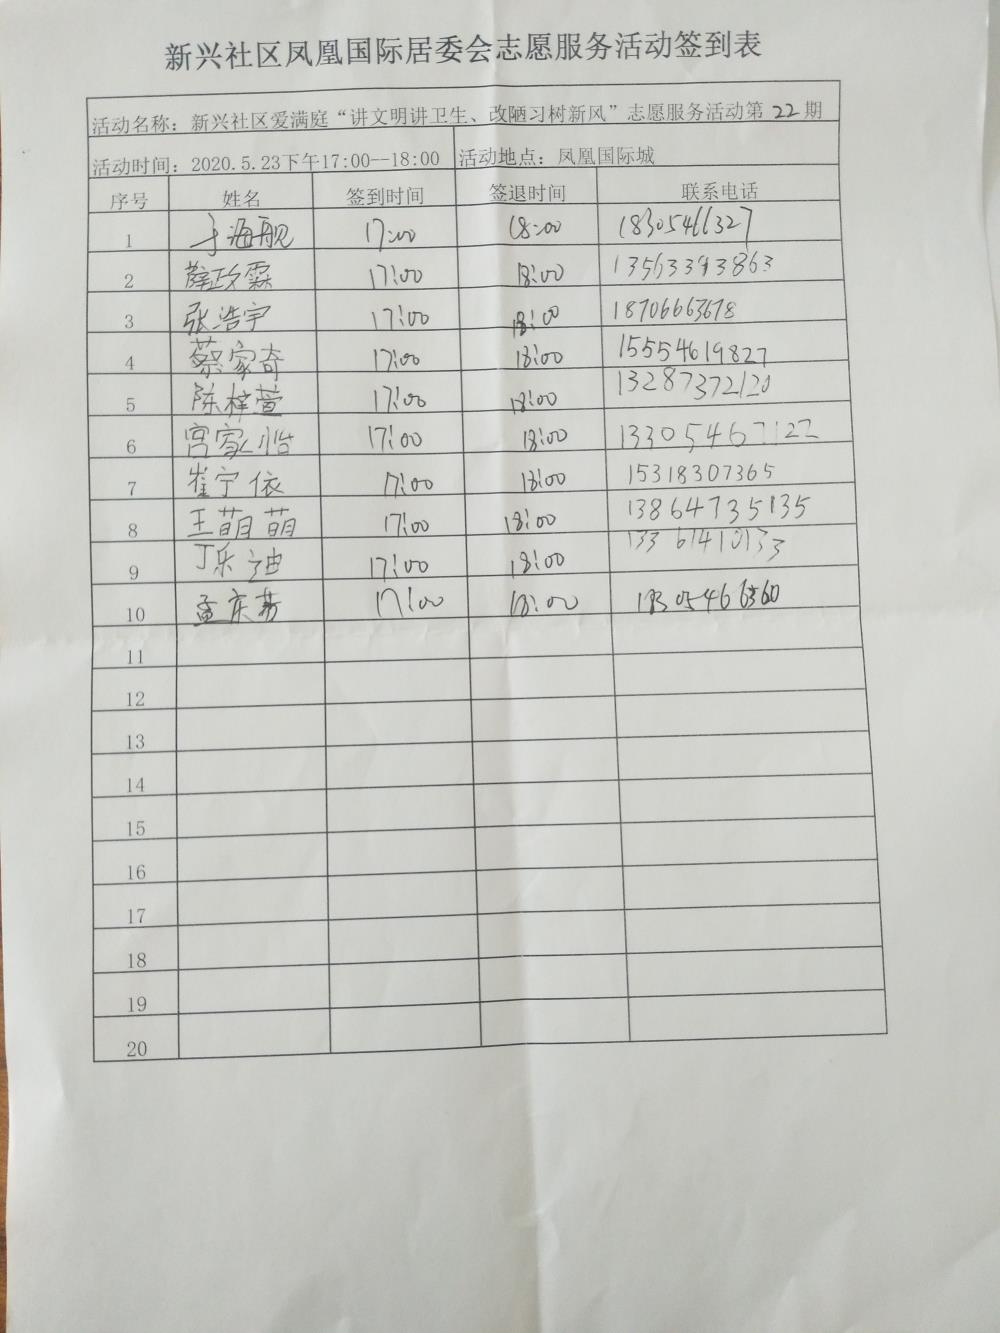 新兴社区凤凰国际居委会志愿服务活动签到表
活动名称：新兴社区爱满庭“讲文明讲卫生、改陋习树新风”志愿服务活动第22期
活动时间：2020.5.23下午17:00--18:00 活动地点：凤凰国际城
序号 姓名 签到时间 签退时间 联系电话
1 于海舰 17:00 18:00 18305466327
2 薛政霖 17:00 18:00 13563393863
3 张浩宇 17:00 18:00 18706663678
4 蔡家奇 17:00 18:00 15554619827
5 陈梓萱 17:00 18:00 13287372120
6 宫家怡 17:00 18:00 13305467122
7 崔宁依 17:00 18:00 15318307365
8 王萌萌 17:00 18:00 13864735135
9 丁乐迪 17:00 18:00
10 孟庆 17:00 18:00
11
12
13
14
15
16
17
18
19
20